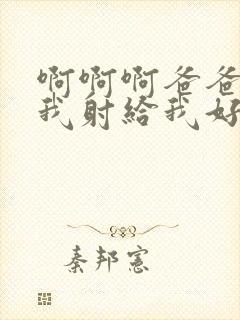 啊啊啊爸爸
我射给我好
秦邦憲